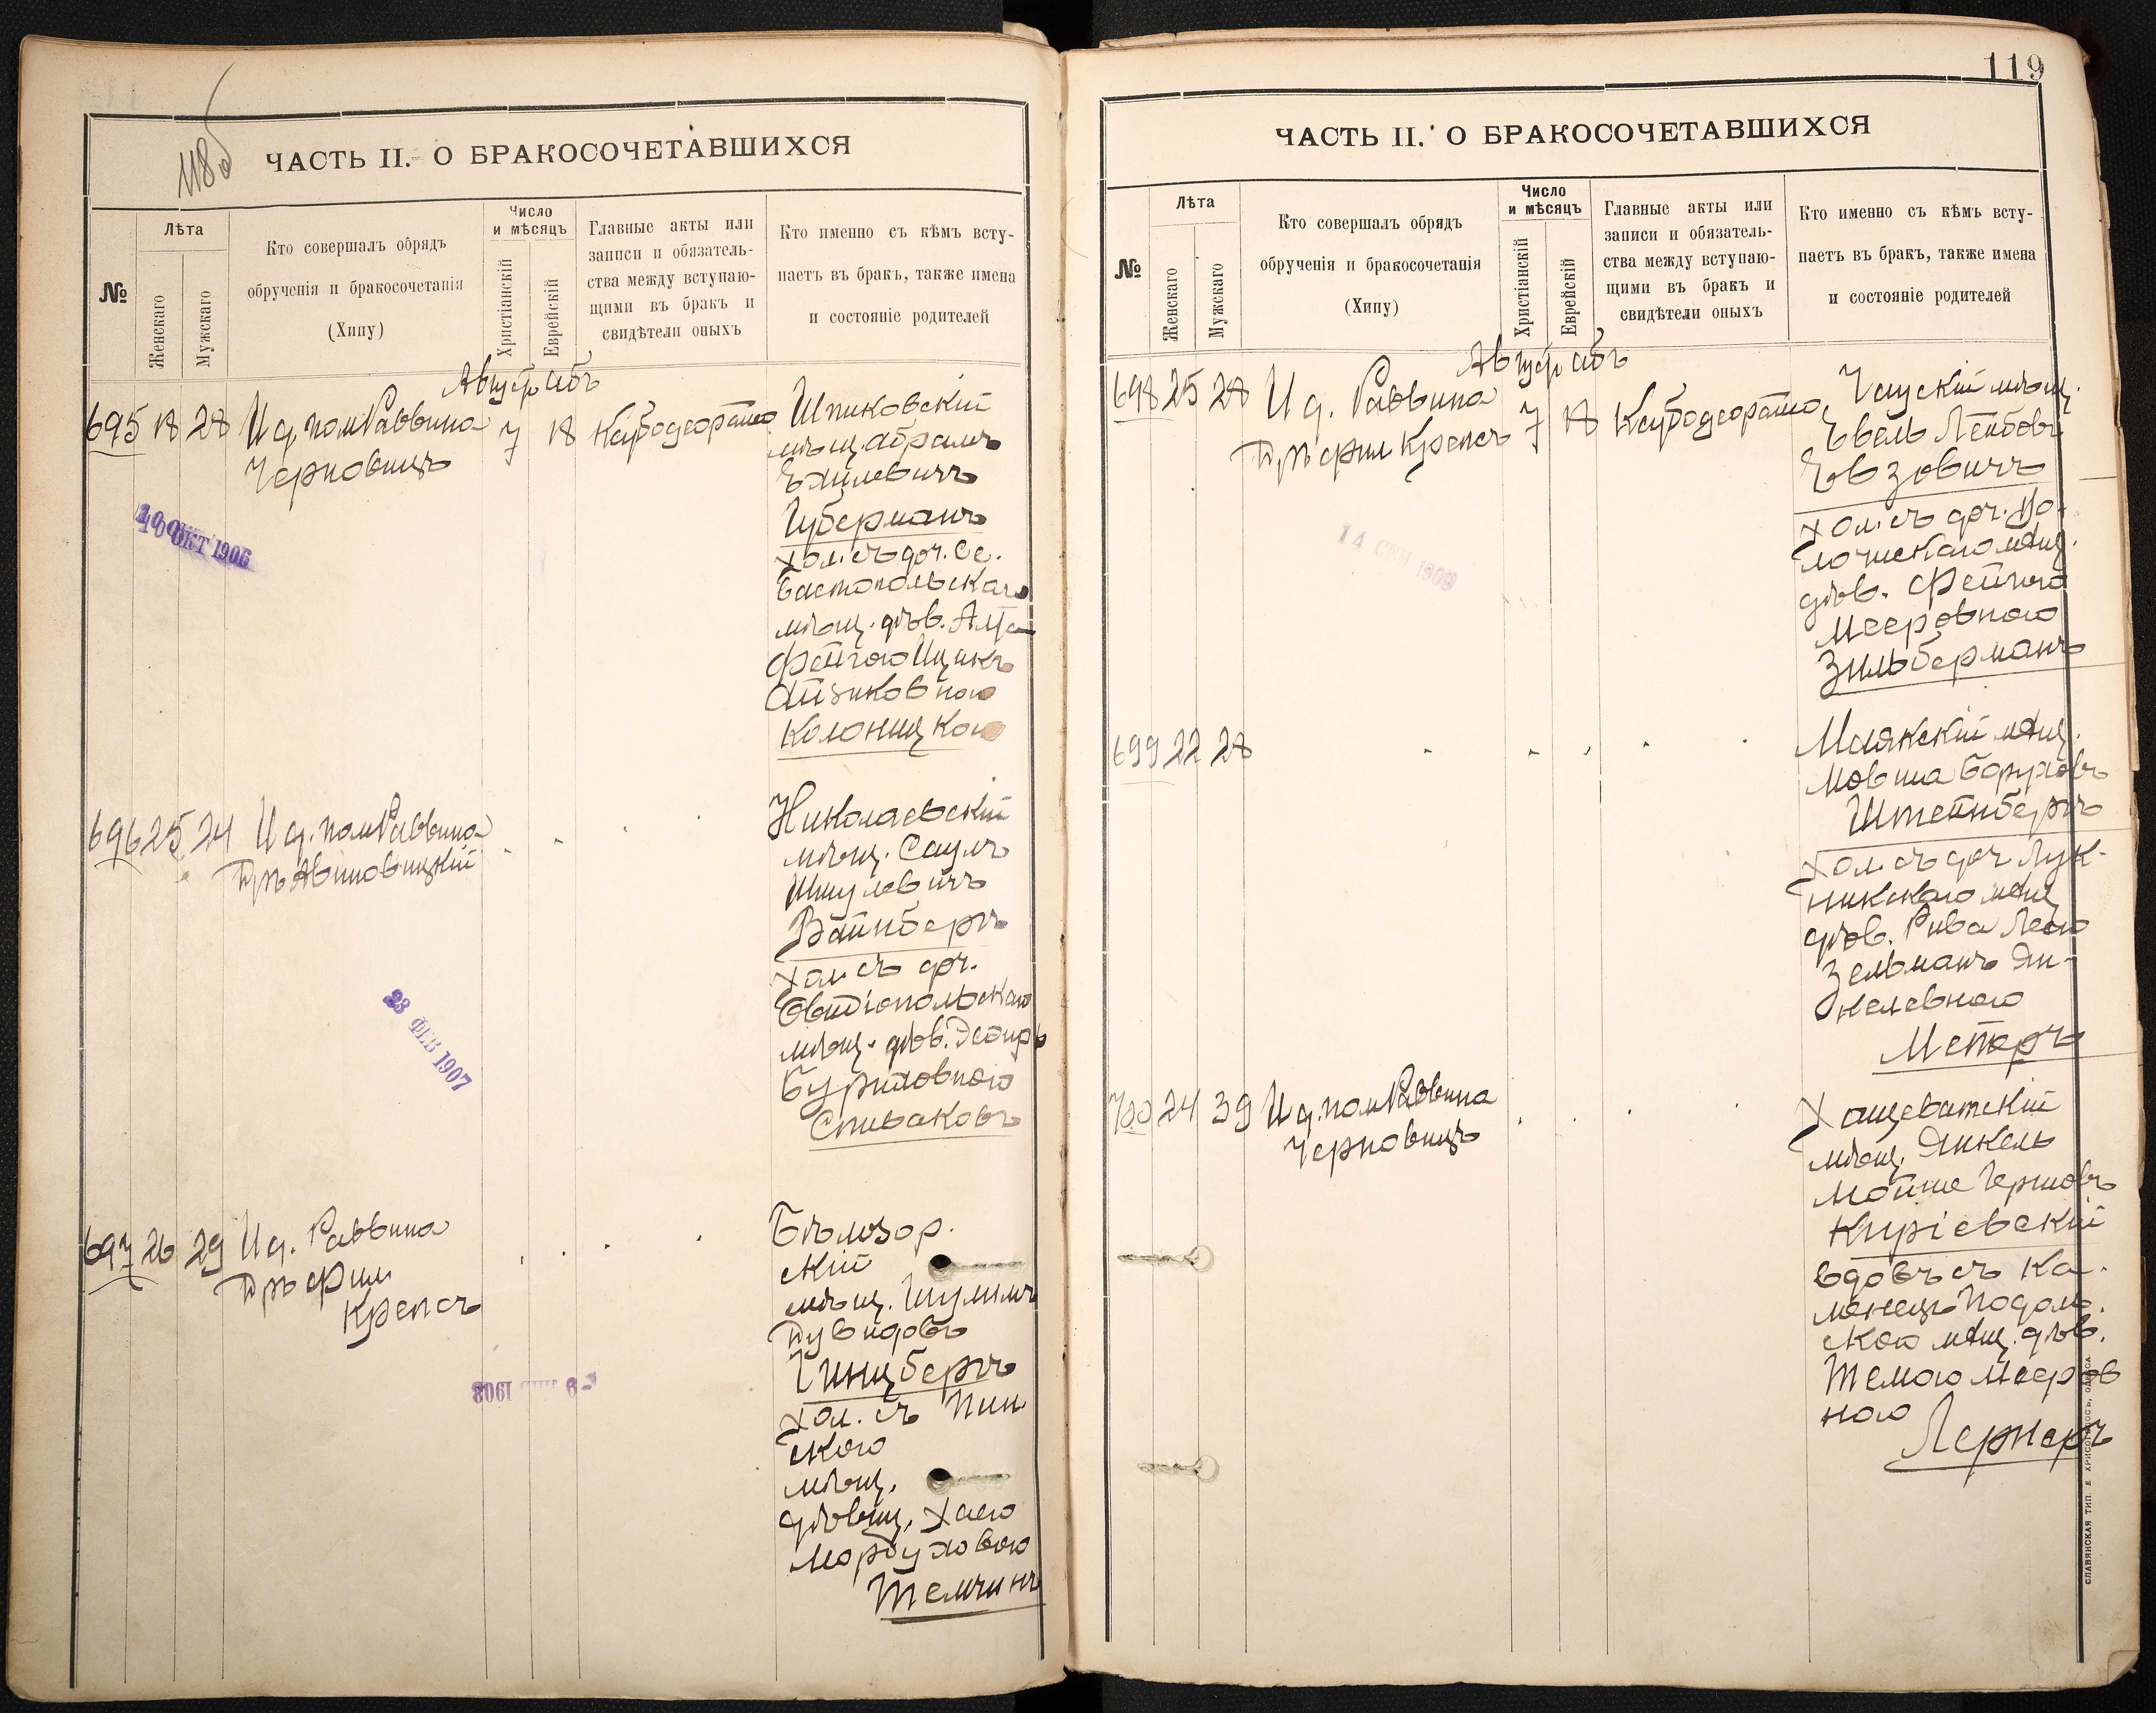 118 об
ЧАСТЬ II. О БРАКОСОЧЕТАВШИХСЯ
№
Лѣта
Женскаго
Мужскаго
Кто совершалъ обрядъ
обрученія и бракосочетанія
(Хипу)
Число
и мѣсяцъ
Христіанскій
Еврейскій
Главные акты или
записи и обязатель-
ства между вступаю-
щими въ бракъ и
свидѣтели оныхъ
Кто именно съ кѣмъ всту-
паетъ въ бракъ, также имена
и состояніе родителей
Авгус. Абъ
695 18 28 И д. пом Раввина 7 18
Черновицъ
Шпиковскій
мѣщ. Абрамъ
Губерманъ
хол. съ доч. Се-
вастопольскаго
мѣщ. дѣв.
Фейгою Ицикъ
Айзиковною
Колоницкою
10 ОКТ 1906
696 25 24 И д. пом Раввина
Д-ръ Авиновицкій
Николаевскій
мѣщ. Саулъ
Шмулевичъ
Вайнбергъ
хол. съ доч.
Овидіопольскаго
мѣщ. дѣв. Эстиръ
Спиваковъ
23 ФЕВ 1907
697 26 29 И д. Раввина
Д-ръ фил
Крепсъ
скій
мѣщ. Шулимъ
Дувидовъ
Гинцбергъ
хол. съ Пин
скою
мѣщ.
дѣвиц. Хаею
Мордуховою
Темчинъ
119
ЧАСТЬ II. О БРАКОСОЧЕТАВШИХСЯ
№
Лѣта
Женскаго
Мужскаго
Кто совершалъ обрядъ
обрученія и бракосочетанія
(Хипу)
Число
и мѣсяцъ
Христіанскій
Еврейскій
Главные акты или
записи и обязатель-
ства между вступаю-
щими въ бракъ и
свидѣтели оныхъ
Кто именно съ кѣмъ всту-
паетъ въ бракъ, также имена
и состояніе родителей
Авгус. Абъ
698 25 28 И д. Раввина 7 18
Д-ръ фил Крепсъ
Чаускій мѣщ.
Евель Лейбовъ
Евзовичъ
хол. съ доч. Во-
лочискаго мѣщ.
дѣв. Фейгою
Мееровною
Зильберманъ
14 СЕН 1909
699 22 28
Маякскій мѣщ.
Мовша Боруховъ
Штейнбергъ
хол съ доч Лук-
никскаго мѣщ
дѣв. Рива Леею
Зельманъ Ян-
келевною
Мейеръ
700 24 39 И д. пом Раввина
Черновицъ
Хащеватскій
мѣщ. Янкель
Мойше Гершовъ
Киріевскій
вдовъ съ Ка-
менецъ Подоль-
скою мѣщ. дѣв.
Темою Мееров
ною
Лернеръ
СЛАВЯНСКАЯ ТИП. Е ХРИСОГЕЛОСЪ, ОДЕССА